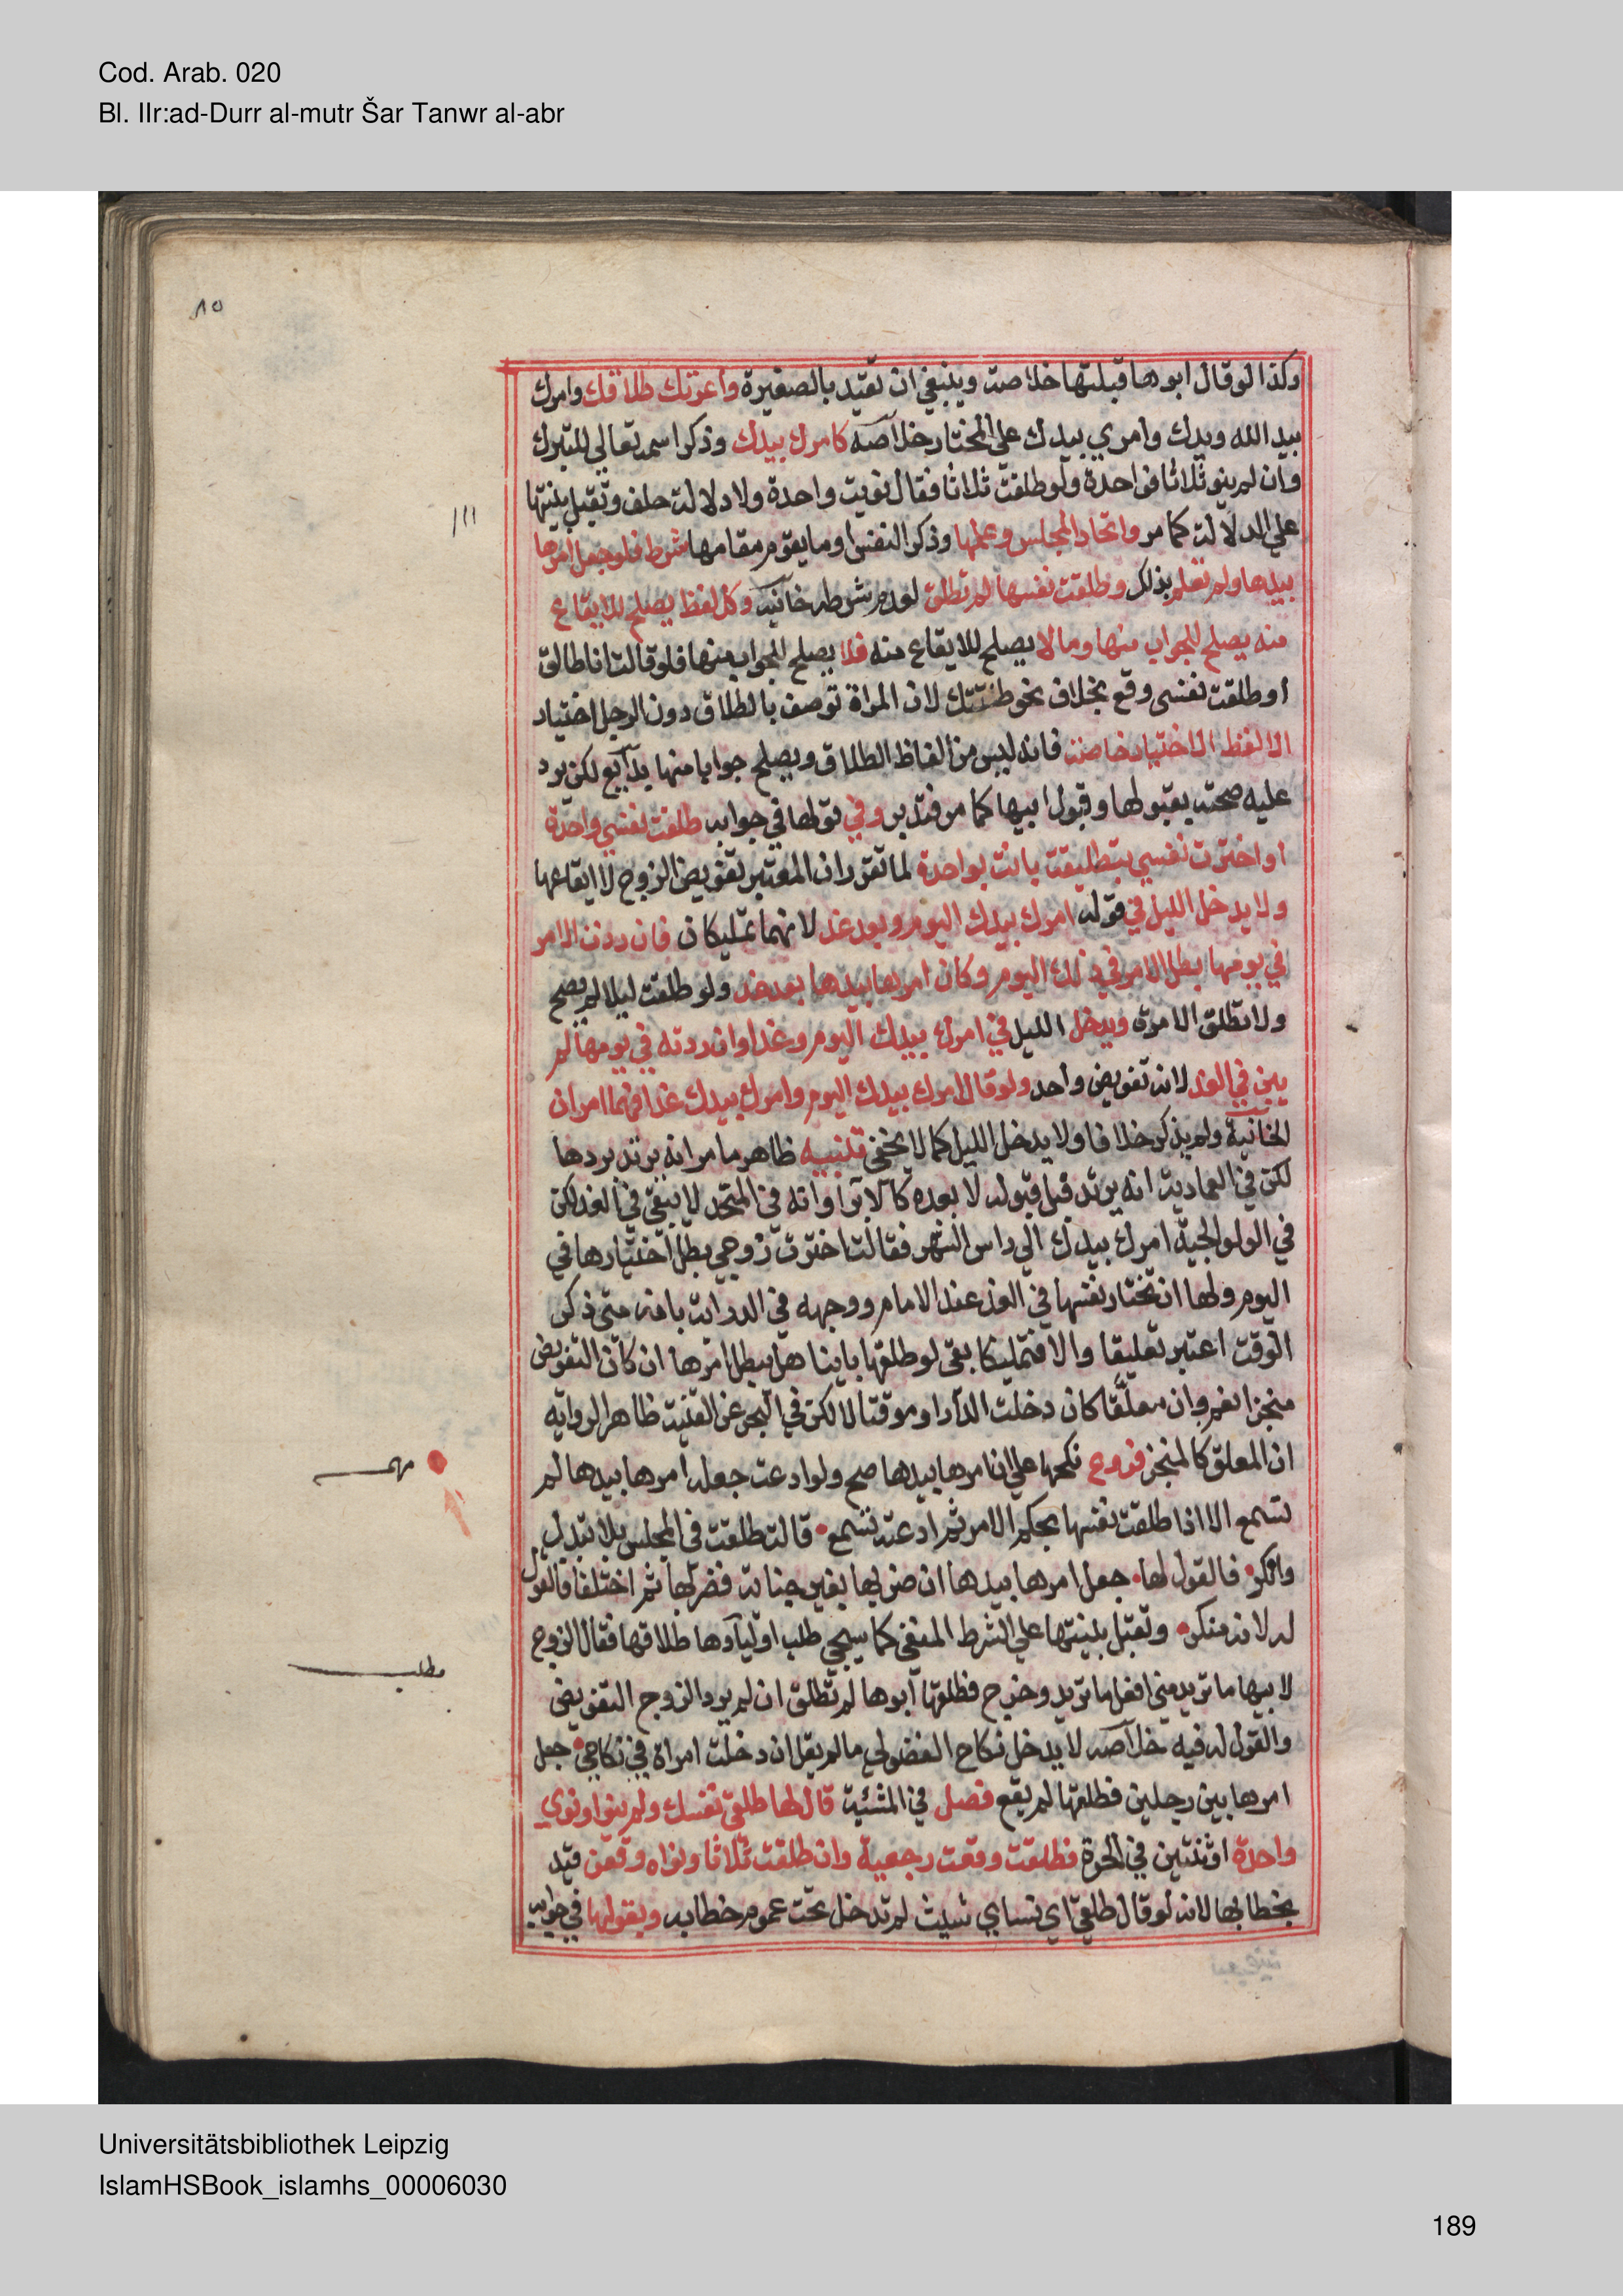 Cod. Arab. 020
Bl. IIr:ad-Durr al-mutr Šar Tanwr al-abr
٨٥
وكذا لو قال ابوها قبلتها خلاصة وينبغي ان تقيد بالصغيرة واعرتك طلاقك وامرك
بيد الله وبيدك وامري بيدك على المختار خلاصه كامرك بيدك وذكر اسمه تعالى للتبرك
وان لم ينو ثلاثا فواحدة ولو طلقت ثلاثا فقال نويت واحدة ولا دلالة حلف وتقبل بينتها
على الدلالة كما مر واتحاد المجلس وعلمها وذكر النفس او ما يقوم مقامها شرط فلو جعل امرها
بيدها ولم تعلم بذلك وطلقت نفسها لم تطلق لعدم شرطه خانيه وكل لفظ يصلح للايقاع
منه يصلح للجواب منها وما لا يصلح للايقاع منه فلا يصلح للجواب منها فلو قالت انا طالق
او طلقت نفسي وقع بخلاف نحو طلقتك لان المراة توصف بالطلاق دون الرجل اختيار
الا لفظ الاختيار خاصة فانه ليس من الفاظ الطلاق ويصلح جوابا منها بدايع لكن يرد
عليه صحته بقبولها وقبول ابيها كما مر فتدبر وفي قولها في جوابه طلقت نفسي واحدة
او اخترت نفسي بتطليقة بانت بواحدة لما تقرر ان المعتبر تفويض الزوج لا ايقاعها
ولا يدخل الليل في قوله امرك بيدك اليوم وبعد غد لانهما تمليكان فان ردت الامر
في يومها بطل الامر في ذلك اليوم وكان امرها بيدها بعد غد ولو طلقت ليلا لم يصح
ولا تطلق الا مرة ويدخل الليل في امرك بيدك اليوم وغدا وان ردته في يومها لم
يبق في الغد لانه تفويض واحد ولو قال امرك بيدك اليوم وامرك بيدك غدا فهما امران
الخانية ولم يذكر خلافا ولا يدخل الليل كما لا يخفى تنبيه ظاهر ما مر انه يرتد بردها
لكن في العمادية انه يرتد قبل قبوله لا بعده كالابرا وانه في المتحد لا يبقى في الغد لكن
في الولوالجية امرك بيدك الى راس الشهر فقالت اخترت زوجي بطل اختيارها في
اليوم ولها ان تختار نفسها في الغد عند الامام ووجهه في الدراية بانه متى ذكر
الوقت اعتبر تعليقا والا فتمليكا بقي لو طلقها باينا هل يبطل امرها ان كان التفويض
منجزا نعم وان معلقا كان دخلت الدار او موقتا لا لكن في البحر عن القنية ظاهر الرواية
ان المعلق كالمنجز فروع نكحها على ان امرها بيدها صح ولو ادعت جعله امرها بيدها لم
تسمع الا اذا طلقت نفسها بحكم الامر ثم ادعته تسمع قالت طلقت في المجلس بلا تبدل
وانكر فالقول لها جعل امرها بيدها ان ضربها بغير جناية فضربها ثم اختلفا فالقول
له لانه منكر وتقبل بينتها على الشرط المنفي كما سيجي طلب اولياوها طلاقها فقال الزوج
لابيها ما تريد مني افعل ما تريد وخرج فطلقها ابوها لم تطلق ان لم يرد الزوج التفويض
والقول له فيه خلاصه لا يدخل نكاح الفضولي ما لم يقل ان دخلت امراة في نكاحي جعل
امرها بين رجلين فطلقها لم يقع فصل في المشئية قال لها طلقي نفسك ولم ينو او نوى
واحدة او ثنتين في الحرة فطلقت وقعت رجعية وان طلقت ثلاثا ونواه وقعن قيد
بخطابها لانه لو قال طلقي اي نساي شيت لم تدخل تحت عموم خطابه وبقولها في جوابه
مهم
مطلب
Universitätsbibliothek Leipzig
IslamHSBook_islamhs_00006030
189